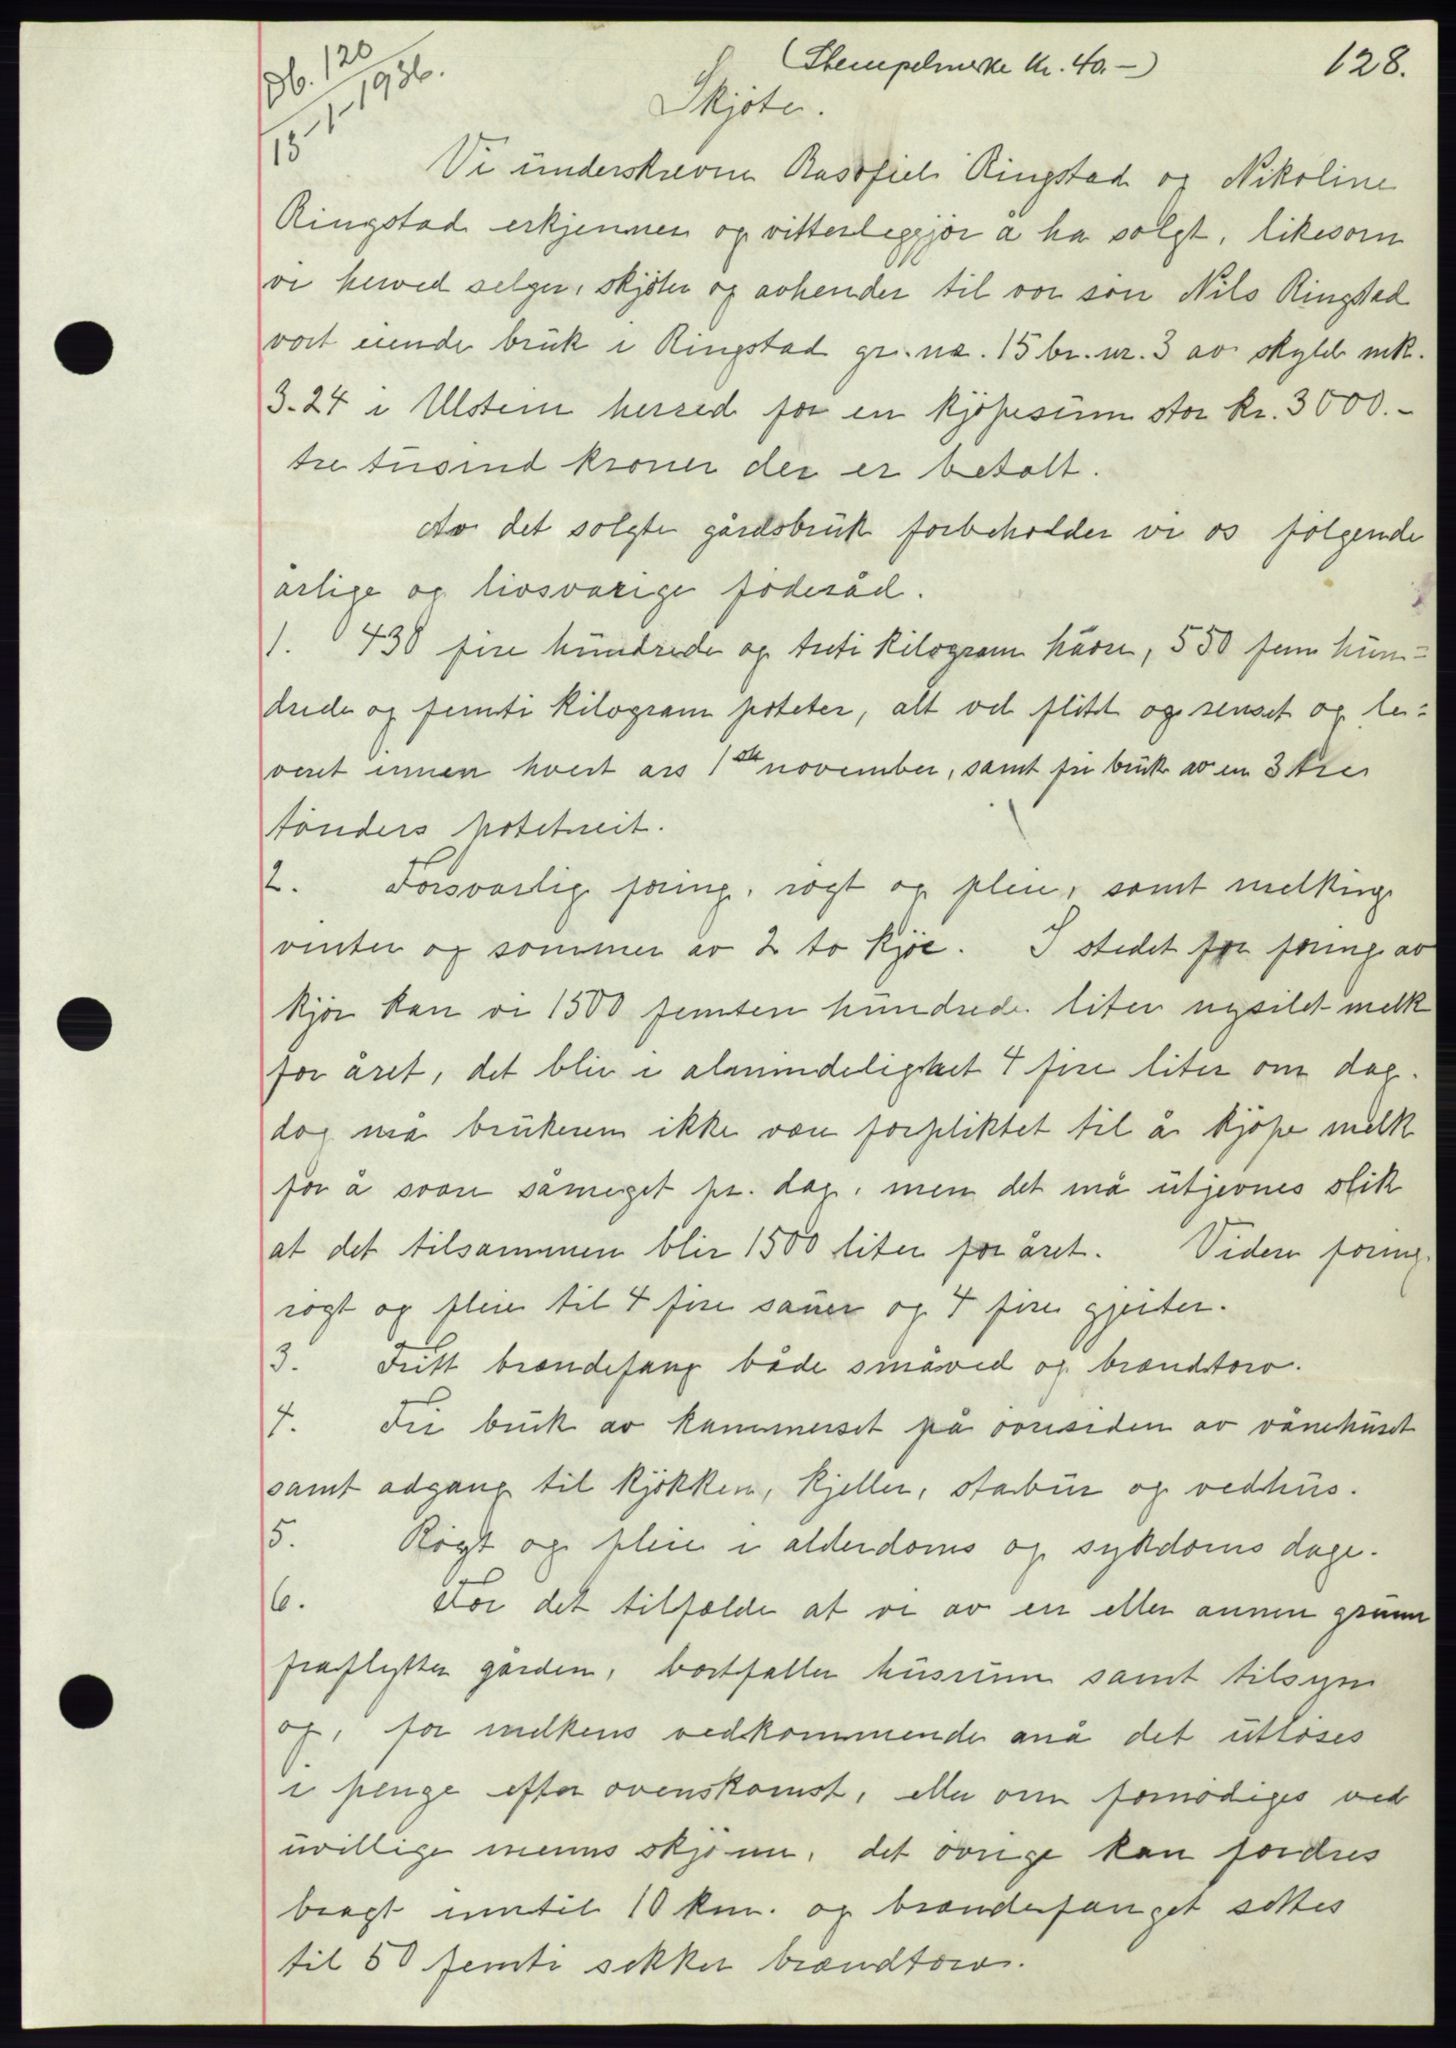 Db. 120
13-1-1936.
(Stempelmerke kr. 40.-)
128.
Skjöte.
Vi underskrevne Rasofiel Ringstad og Nikoline
Ringstad erkjenner og vitterleggjör å ha solgt, likesom
vi herved selger, skjöter og avhender til vor sön Nils Ringstad
vort eiende bruk i Ringstad gr. nr. 15 br. nr. 3 av skyld mk.
3.24 i Ulstein herred for en kjöpesum stor kr. 3000.-
tre tusind kroner der er betalt.
Av det solgte gårdsbruk forbeholder vi os følgende
årlige og livsvarige föderåd.
1. 430 fire hundrede og treti kilogram havre, 550 fem hun=
drede og femti kilogram poteter, alt vel flidd og renset og le=
veret innen hvert års 1ste november, samt fri bruk av en 3 tre
tönders potetreit.
2. Forsvarlig foring, rögt og pleie, samt melking
vinter og sommer av 2 to kjör. I stedet for foring av
kjör kan vi 1500 femten hundrede liter nysilet melk
for året, det blir i almindelighet 4 fire liter om dag.
dog må brukeren ikke være forpliktet til å kjöpe melk
for å svare såmeget pr. dag, men det må utjevnes slik
at det tilsammen blir 1500 liter for året. Videre foring,
rögt og pleie til 4 fire sauer og 4 fire gjeiter.
3. Fritt brændefang både småved og brændtorv.
4. Fri bruk av kammerset på övresiden av vånehuset
samt adgang til kjökken, kjeller, stabur og vedhus.
5. Rögt og pleie i alderdoms og sykdoms dage.
6. For det tilfælde at vi av en eller annen grunn
fraflytter gården, bortfaller husrum samt tilsyn
og, for melkens vedkommende må det utlöses
i penge efter ovenskomst, eller om fornödiges ved
uvillige menns skjönn, det övrige kan fordres
bragt inntil 10 km. og brændefanget settes
til 50 femti sekker brændtorv.